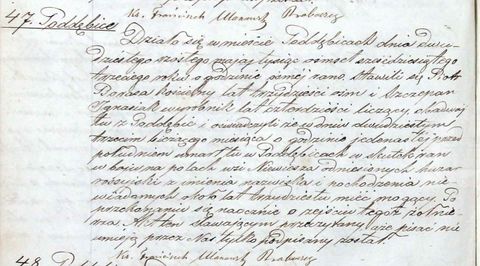 Ks. Franciszek
47. Poddębice
Działo się w mieście Poddębicach dnia dwu-
dziestego szóstego maja tysiąc ośmset sześćdziesiątego
trzeciego roku o godzinie ósmej rano. Stawili się Piotr
kościelny lat trzydzieści ośm i Szczepan
Ignasiak wyrobnik lat czterdzieści liczący obadwaj
tu z Poddębic i oświadczyli że w dniu dwudziestem
trzecim bieżącego miesiąca o godzinie jedenastej przed
południem umarł tu w Poddębicach w skutek ran
w boju na polach wsi Niewiesza odniesionych huzar
rosyjski z imienia nazwiska i pochodzenia nie
wiadomych około lat trzydzieści mieć mogący. Po
przekonaniu się naocznie o zejściu tegoż żołnie-
rza Akt ten stawającym przeczytany iż pisać nie
umieją przez Nas tylko podpisany został.
48. Ks. Franciszek